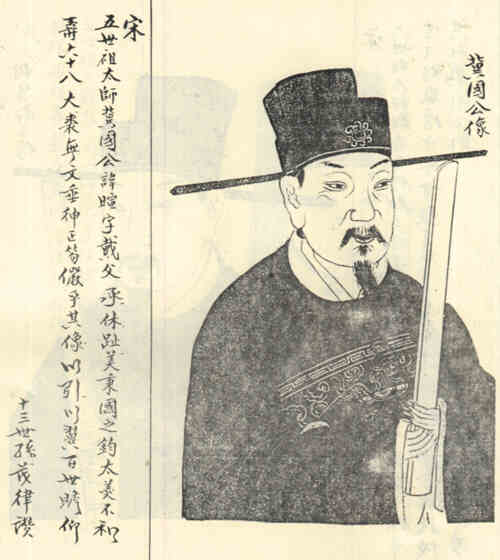 冀國公像
宋
五世祖太師冀國公諱暄字戴父承休趾美秉國之鈞太羹不和
壽六十八大裘無文垂紳正笏儼乎其像以引以翼百世瞻仰
十三世孫茂律讚